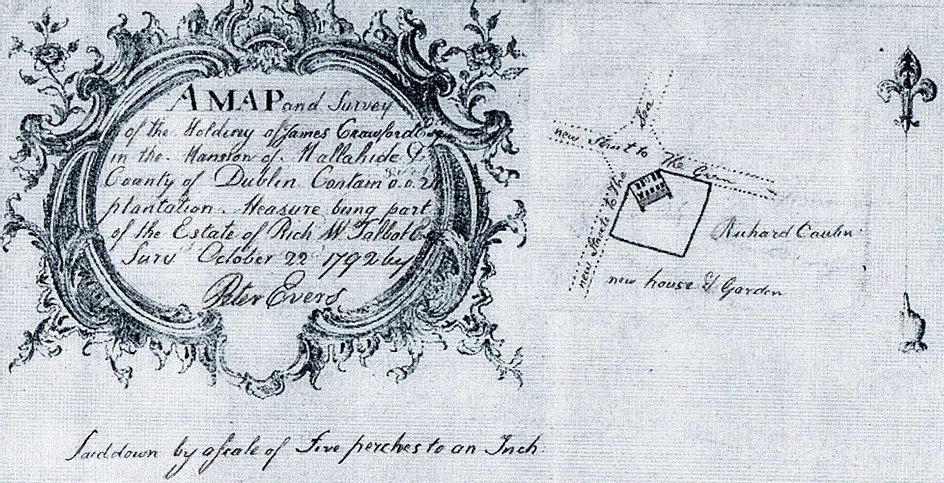 A MAP and Survey
of the Holding of James Crawford Esqr
in the Manston of Mallahide &
County of Dublin Contain 0. 0.
plantation Measure being part
of the Estate of Rich W Talbot
Surv October 22 1792 by
Peter Evers
Sea
new Street to The Green
new Street to The
Richard Caulin
new house & Garden
Laid down by a scale of Five perches to an Inch